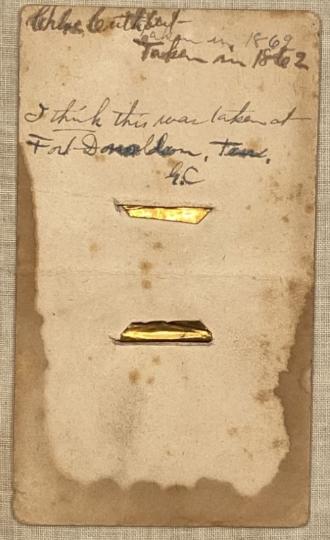 Cuthbert
taken in 1869
Taken in 1862
I think this was taken at
Fort Donaldson, Tenn.
G.C